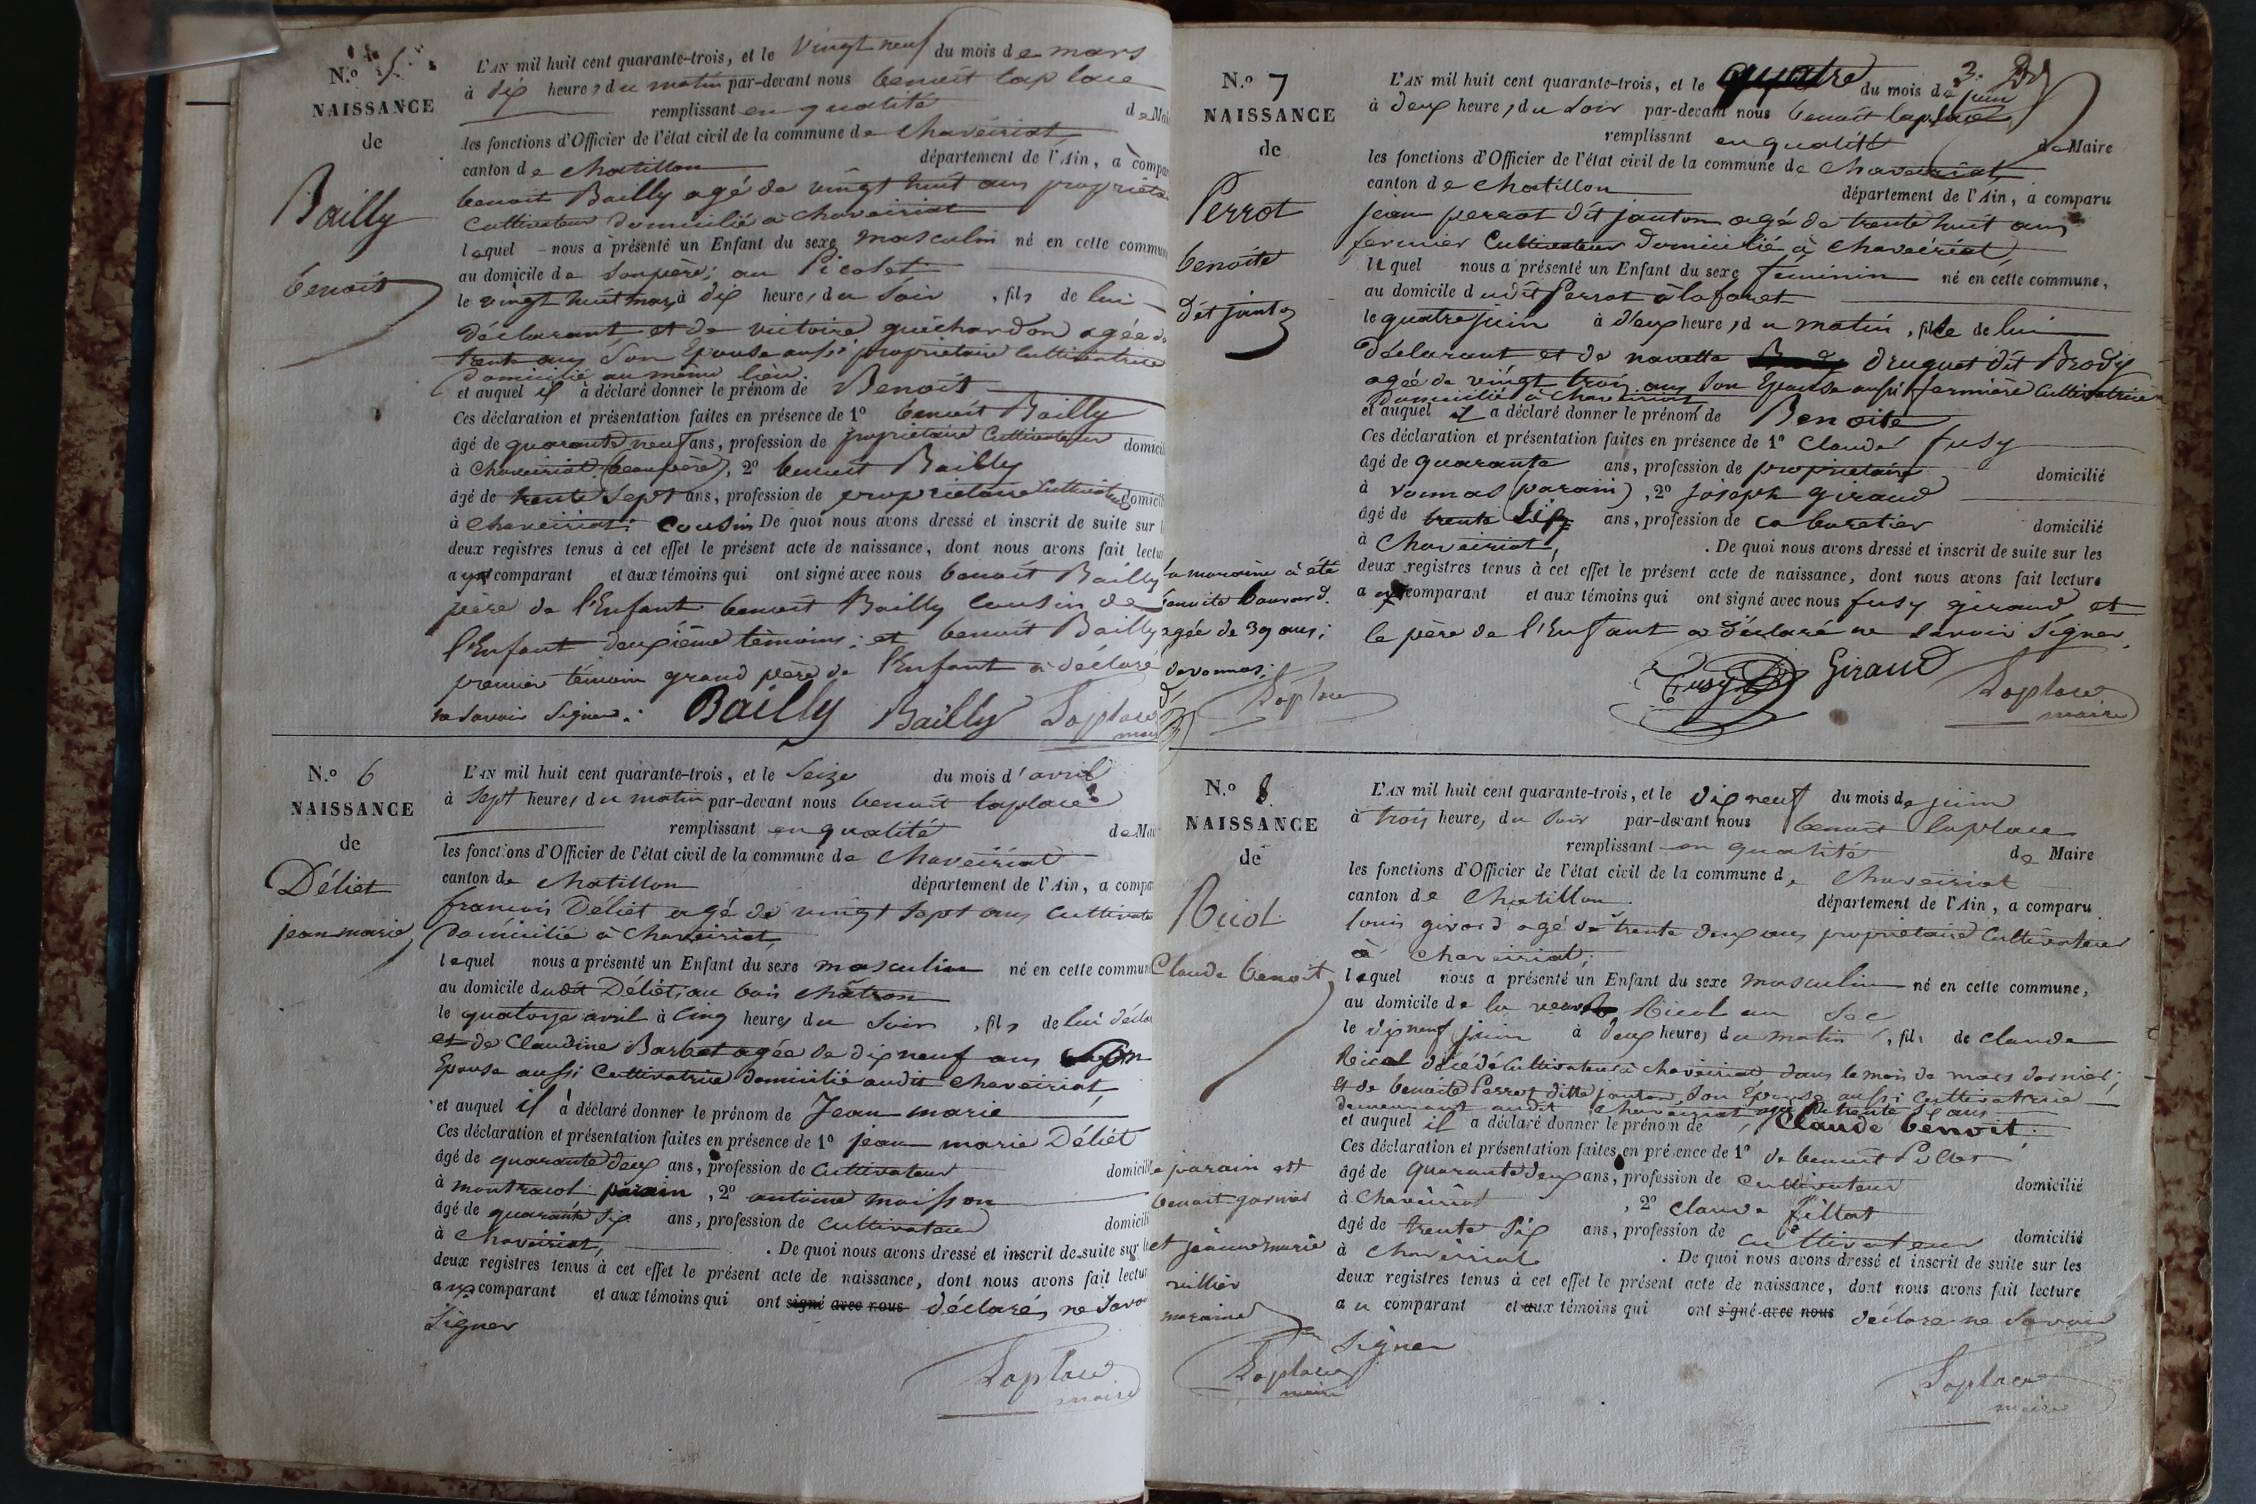 N.o 5
NAISSANCE
de
Bailly
benoit
L'AN mil huit cent quarante-trois, et le vingt neuf du mois de mars
à dix heures du matin par-devant nous benoit laplace
remplissant en qualité de Mai
les fonctions d'Officier de l'état civil de la commune de chaveiriat
canton de chatillon département de l'Ain, a compa
benoit Bailly agé de vingt huit ans proprietai
Cultivateur domicilié à chaveiriat
lequel nous a présenté un Enfant du sexe masculin né en cette commun
au domicile de son père; au Picolet
le vingt huit mars à dix heures du soir , fils de lui
déclarant, et de victoire guichardon agée de
trente ans son Epouse aussi propriétaire Cultivatrice
domicilié au même lieu.
et auquel il à déclaré donner le prénom de Benoit
Ces déclaration et présentation faites en présence de 1º benoit Bailly
âgé de quarante neuf ans, profession de propriétaire Cultivateur domicili
à chaveiriat (beaupère), 2º benoit Bailly
âgé de trente sept ans, profession de propriétaire Cultivateur domicil
à chaveiriat; cousin De quoi nous avons dressé et inscrit de suite sur l
deux registres tenus à cet effet le présent acte de naissance, dont nous avons fait lectu
aux comparant et aux témoins qui ont signé avec nous benoit Bailly
père de l'Enfant benoit Bailly cousin de
l'Enfant deuxième témoins; et benoit Bailly
premier témoin grand père de l'Enfant a déclaré
ne savoir signer.
Bailly Bailly Laplace
maire
N.o 6
NAISSANCE
de
Déliet
jean marie
L'AN mil huit cent quarante-trois, et le seize du mois d'avril
à sept heures du matin par-devant nous benoit laplace
remplissant en qualité de Mai
les fonctions d'Officier de l'état civil de la commune de chaveiriat
canton de chatillon département de l'Ain, a compa
francois Déliet agé de vingt sept ans cultivate
domicilié à chaveiriat
lequel nous a présenté un Enfant du sexe masculin né en cette commun
au domicile dudit Déliet; au bois châtron
le quatorze avril à cinq heures du soir , fils de lui décla
et de Claudine Barbet agée de dix neuf ans son
Epouse aussi Cultivatrice domicilié audit chaveiriat
et auquel il à déclaré donner le prénom de Jean marie
Ces déclaration et présentation faites en présence de 1º jean marie Déliet
âgé de quarante deux ans, profession de cultivateur domicili
à montracol parain , 2º antoine moisson
âgé de quarante six ans, profession de cultivateur domicili
à chaveiriat, . De quoi nous avons dressé et inscrit de suite sur l
deux registres tenus à cet effet le présent acte de naissance, dont nous avons fait lectur
aux comparant et aux témoins qui ont signé avec nous déclarés ne savoi
signer
Laplace
maire
N.o 7
NAISSANCE
de
Perrot
benoite
dit janton
L'AN mil huit cent quarante-trois, et le quatre du mois de juin
à deux heures du soir par-devant nous benoit laplace
remplissant en qualité de Maire
les fonctions d'Officier de l'état civil de la commune de chaveiriat
canton de chatillon département de l'Ain, a comparu
jean perrot dit janton agé de trente huit ans
fermier Cultivateur domicilié à chaveiriat,
lequel nous a présenté un Enfant du sexe féminin né en cette commune,
au domicile dudit Perrot à la foret
le quatre juin à deux heures du matin , fille de lui
déclarant et de nanette druguet dit Brody
agée de vingt trois ans son Epouse aussi fermière Cultivatrice
domicilié à chaveiriat
et auquel il a déclaré donner le prénom de Benoite
Ces déclaration et présentation faites en présence de 1º Claude fusy
âgé de quarante ans, profession de propriétaire domicilié
à vonnas (parain) , 2º joseph giraud
âgé de trente six ans, profession de cabaretier domicilié
à chaveiriat, . De quoi nous avons dressé et inscrit de suite sur les
deux registres tenus à cet effet le présent acte de naissance, dont nous avons fait lecture
aux comparant et aux témoins qui ont signé avec nous fusy giraud et
le père de l'Enfant a déclaré ne savoir signer.
la maraine à été
benoite bouvard.
agée de 39 ans;
de vonnas;
Laplace
Fusy Giraud Laplace
maire
N.o 8
NAISSANCE
de
Nicol
Claude benoit
L'AN mil huit cent quarante-trois, et le dix neuf du mois de juin
à trois heures, du soir par-devant nous benoit laplace
remplissant en qualité de Maire
les fonctions d'Officier de l'état civil de la commune de chaveiriat
canton de chatillon département de l'Ain, a comparu
louis givord agé de trente deux ans propriétaire Cultivateur
à chaveiriat;
lequel nous a présenté un Enfant du sexe masculin né en cette commune,
au domicile de la veuve Nicol au Sac
le dix neuf juin à deux heures du matin , fils de claude
Nicol décédé Cultivateur à chaveiriat dans le mois de mars dernier;
et de benoite Perrot ditte janton son Epouse aussi cultivatrice
demeurant audit chaveiriat agée de trente six ans
et auquel il a déclaré donner le prénom de Claude benoit;
Ces déclaration et présentation faites en présence de 1º de benoit Pillet
âgé de quarante deux ans, profession de cultivateur domicilié
à chaveiriat , 2º claude fillat
âgé de trente six ans, profession de cultivateur domicilié
à chaveiriat . De quoi nous avons dressé et inscrit de suite sur les
deux registres tenus à cet effet le présent acte de naissance, dont nous avons fait lecture
au comparant et aux témoins qui ont signé avec nous déclare ne savoir
signer
le parain est
benoit garnier
et jeanne marie
maraine
Laplace
maire
Laplace
maire